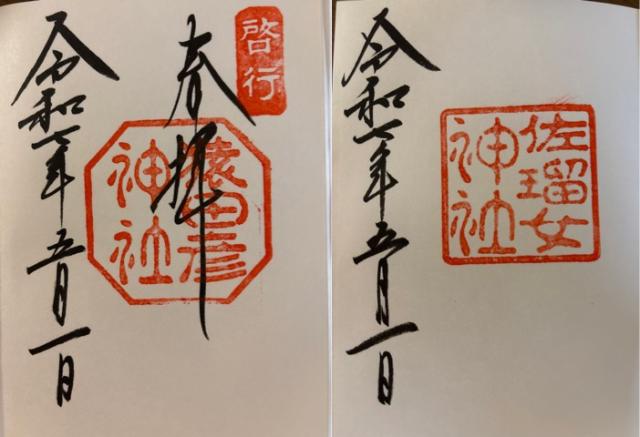 啓行
奉拝
猿田彦
神社
令和七年五月一日
佐瑠女
神社
令和七年五月一日